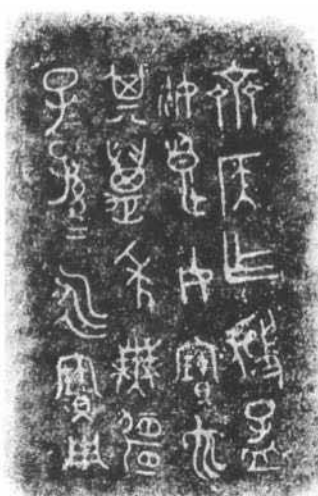 齊侯乍虢孟
姬良女寶它
其萬年無疆
子=孫=永寶用